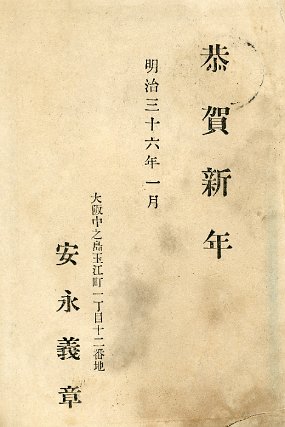 恭賀新年
明治三十六年一月
大阪中之島玉江町一丁目十二番地
安永義章